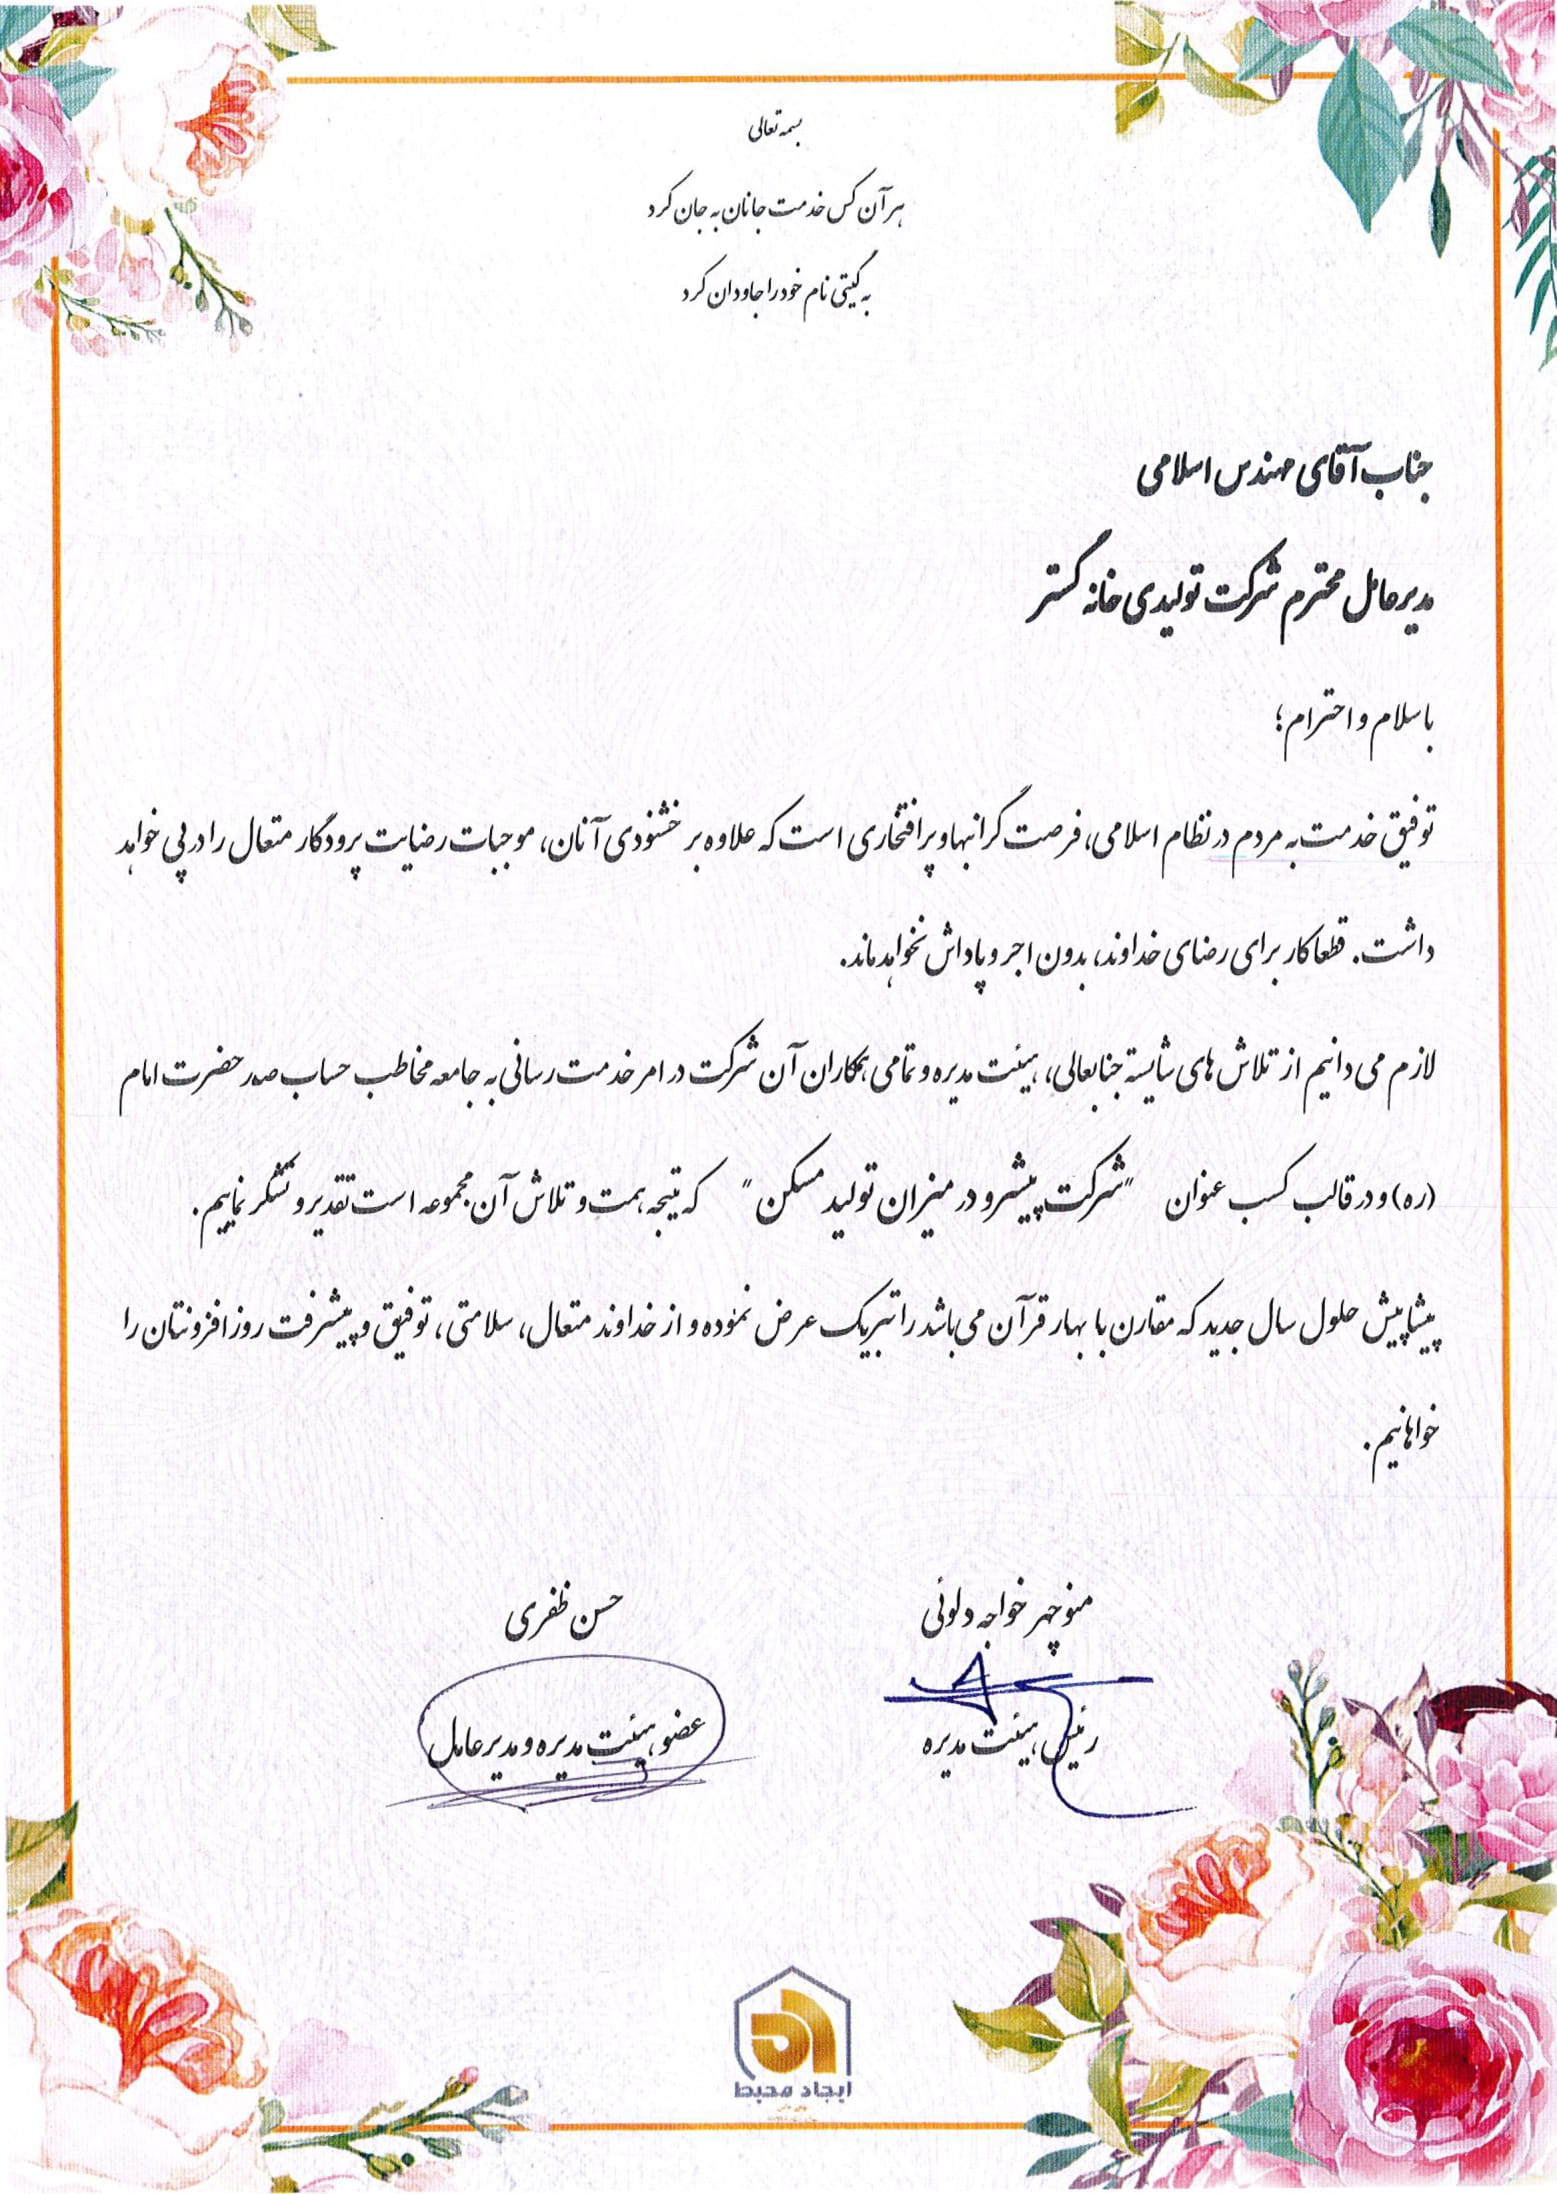 بسمه تعالی
هر آن کس خدمت جانان به جان کرد
به گیتی نام خود را جاودان کرد
جناب آقای مهندس اسلامی
مدیرعامل محترم شرکت تولیدی خانه گستر
با سلام و احترام؛
توفیق خدمت به مردم در نظام اسلامی، فرصت گرانبها و پرافتخاری است که علاوه بر خشنودی آنان، موجبات رضایت پرودگار متعال را در پی خواهد
داشت. قطعا کار برای رضای خداوند، بدون اجر و پاداش نخواهد ماند.
لازم می دانیم از تلاش های شایسته جنابعالی، هیئت مدیره و تمامی همکاران آن شرکت در امر خدمت رسانی به جامعه مخاطب حساب صدر حضرت امام
(ره) و در قالب کسب عنوان "شرکت پیشرو در میزان تولید مسکن" که نتیجه همت و تلاش آن مجموعه است تقدیر و تشکر نماییم.
پیشاپیش حلول سال جدید که مقارن با بهار قرآن می باشد را تبریک عرض نموده و از خداوند متعال، سلامتی، توفیق و پیشرفت روزافزونتان را
خواهانیم.
منوچهر خواجه دلوئی
رئیس هیئت مدیره
حسن ظفری
عضو هیئت مدیره و مدیرعامل
ایجاد محیط